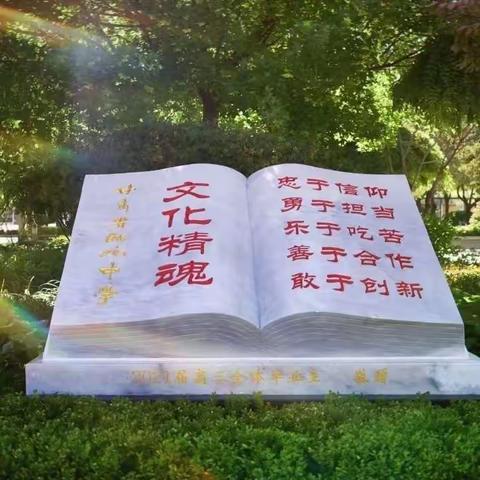 文化精魂
甘肃省 中学
忠于信仰
勇于担当
乐于吃苦
善于合作
敢于创新
2021届高三全体毕业生 敬赠